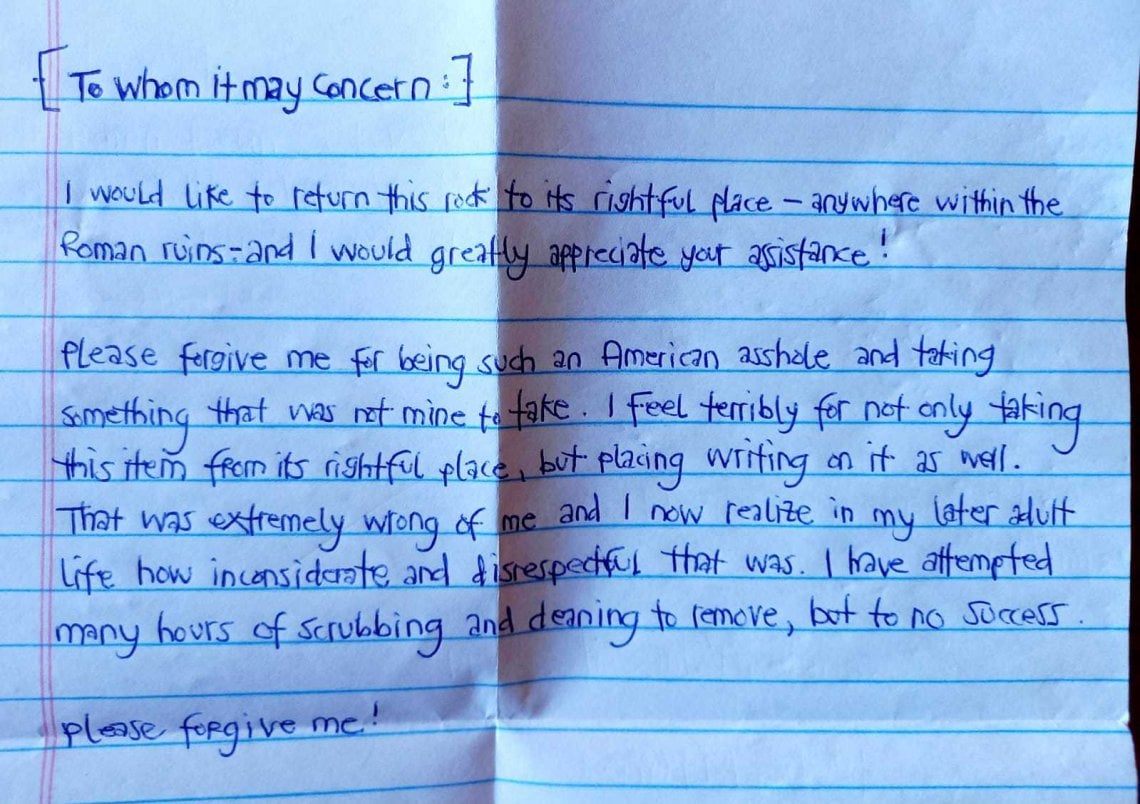 [To whom it may concern:]
I would like to return this rock to its rightful place – anywhere within the
Roman ruins – and I would greatly appreciate your assistance!
Please forgive me for being such an American asshole and taking
something that was not mine to take. I feel terribly for not only taking
this item from its rightful place, but placing writing on it as well.
That was extremely wrong of me and I now realize in my later adult
life how inconsiderate and disrespectful that was. I have attempted
many hours of scrubbing and cleaning to remove, but to no success.
please forgive me!